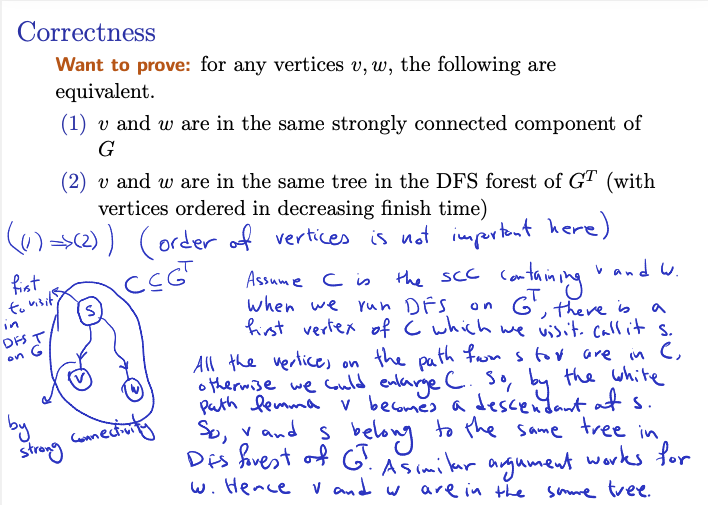 Correctness
Want to prove: for any vertices v, w, the following are
equivalent.
(1) v and w are in the same strongly connected component of
G
(2) v and w are in the same tree in the DFS forest of G^T (with
vertices ordered in decreasing finish time)
((1) ⇒ (2)) (order of vertices is not important here)
first
to visit
in
DFS
on G^T
C ⊆ G^T
S
v
w
by
strong connectivity
Assume C is the SCC containing v and w.
When we run DFS on G^T, there is a
first vertex of C which we visit. Call it s.
All the vertices on the path from s to v are in C,
otherwise we could enlarge C. So, by the white
path lemma v becomes a descendant of s.
So, v and s belong to the same tree in
DFS forest of G^T. A similar argument works for
w. Hence v and w are in the same tree.